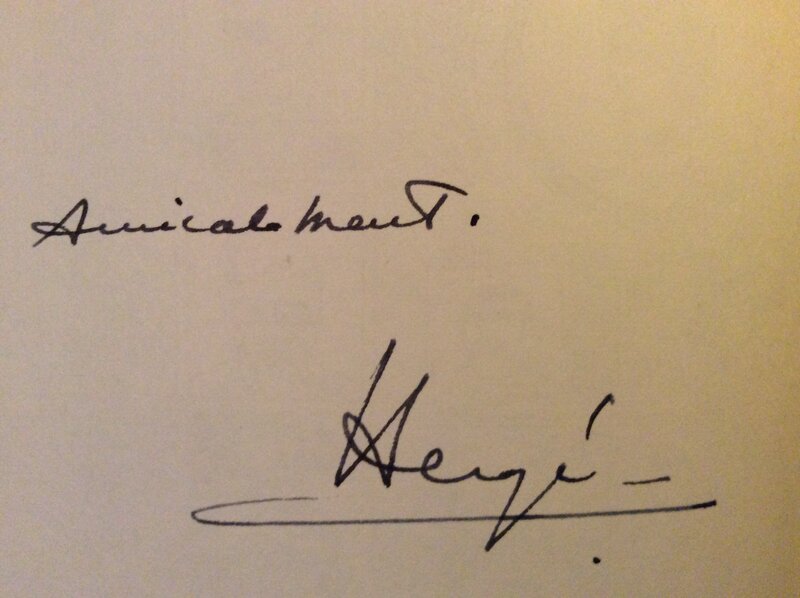 Amicalement.
Hergé